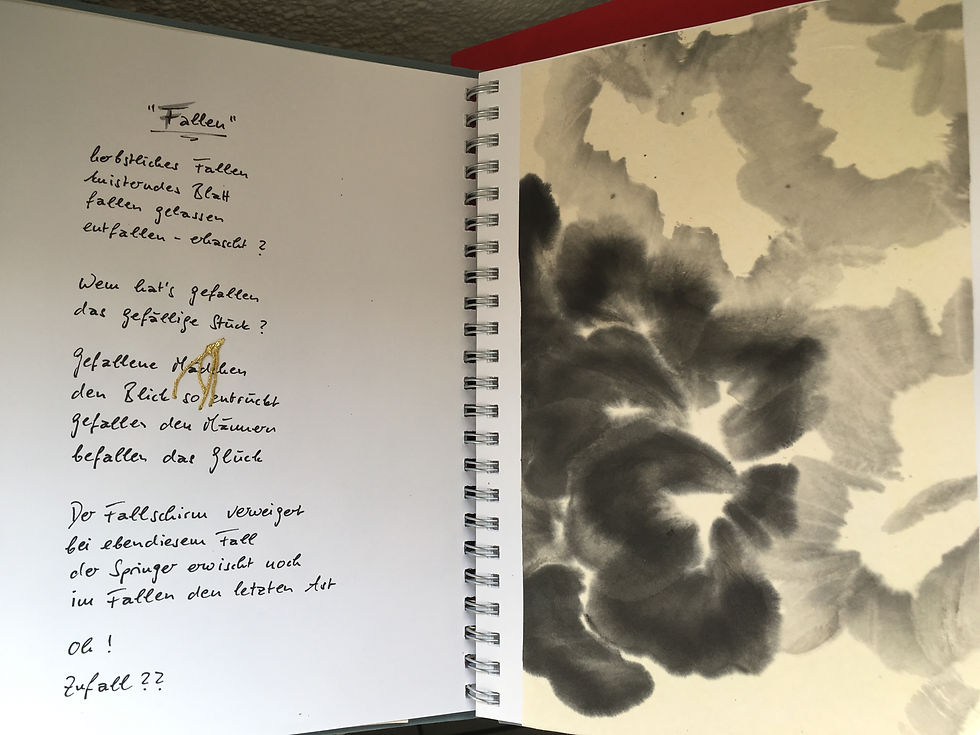 "Fallen"
herbstliches Fallen
knisterndes Blatt
fallen gelassen
entfallen - erhascht ?
Wem hat's gefallen
das gefällige Stück ?
Gefallene Mädchen
den Blick so entrückt
gefallen den Männern
befallen das Glück
Der Fallschirm verweigert
bei ebendiesem Fall
der Springer erwischt noch
im Fallen den letzten Ast
Oh !
Zufall ??